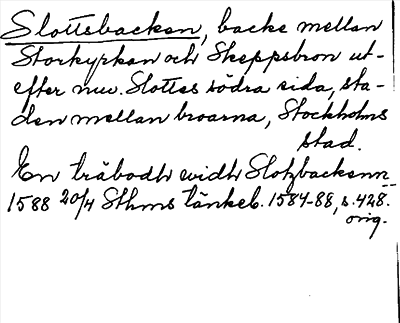 Slottsbacken, backe mellan
Storkyrkan och Skeppsbron ut-
efter nuv. Slottets södra sida, sta-
den mellan broarna, Stockholms
stad.
En träbodh widh Slotzbackenn
1588 20/4 Sthms tänkeb. 1584-88, s. 428.
orig.